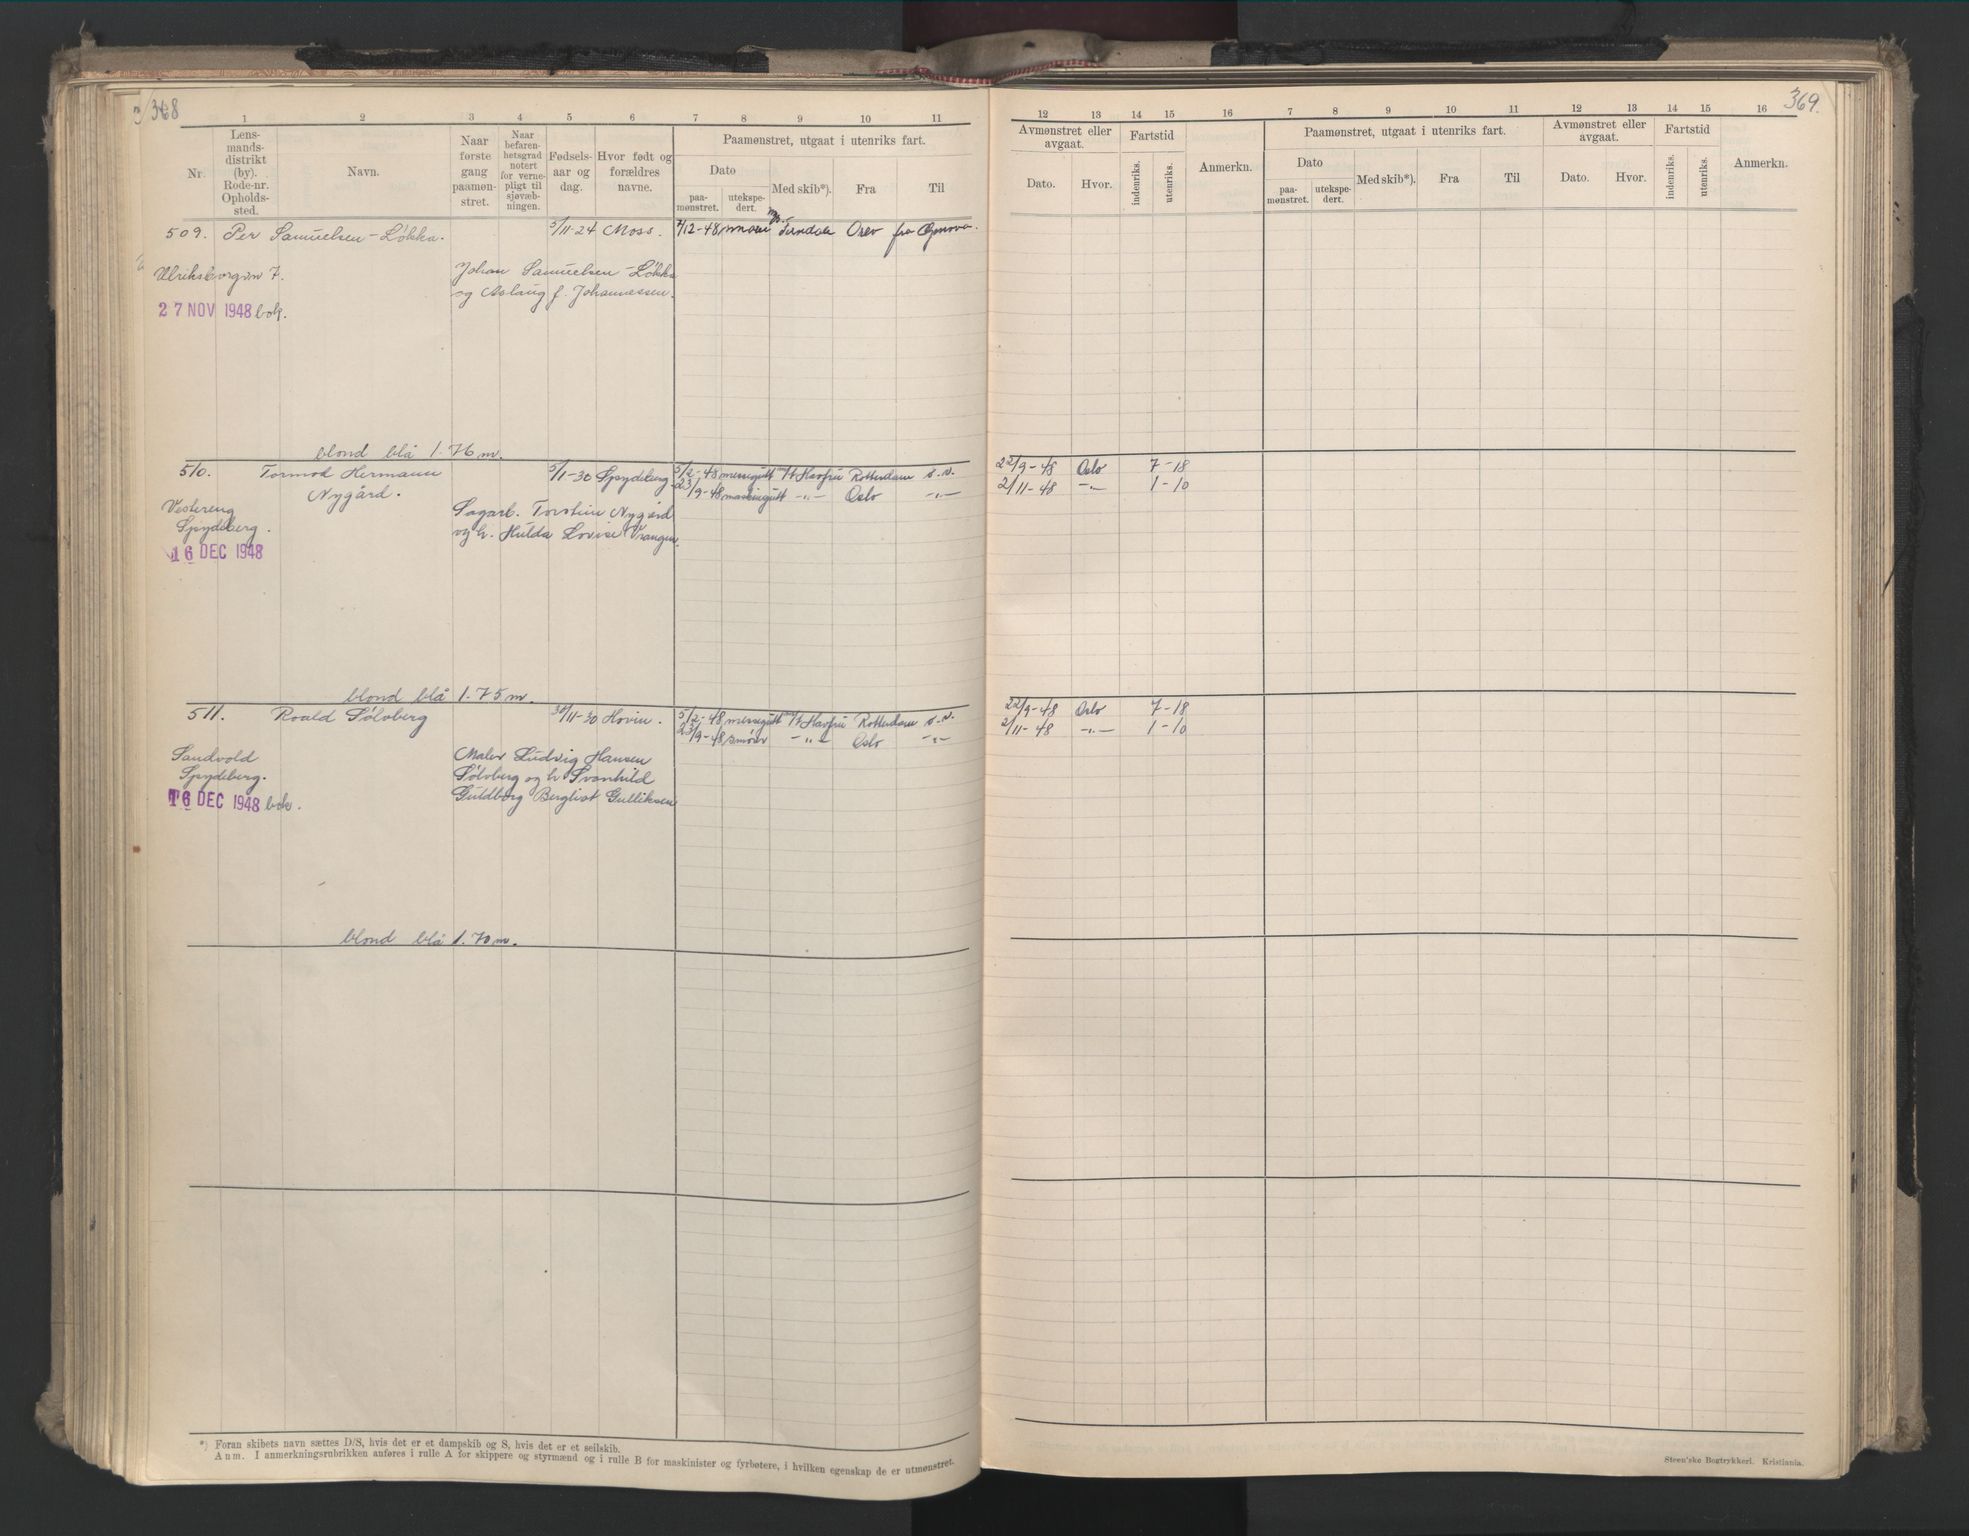 368
1 2 3 4 5 6 7 8 9 10 11
Nr.
Lens-
mands-
distrikt
(by).
Rode-nr.
Opholds-
sted.
Navn.
Naar
første
gang
paamøn-
stret.
Naar
befaren-
hetsgrad
notert
for verne-
pligt til
sjøvæb-
ningen.
Fødsels-
aar og
dag.
Hvor født og
forældres
navne.
Paamønstret, utgaat i utenriks fart.
Dato
paa-
mønstret.
utekspe-
dert.
Med skib*).
Fra
Til
509. Per Samuelsen-Løkka. 5/11-24 Moss. 7/12-48 fra Genova.
Ulriksborgvn 7. Johan Samuelsen-Løkka
og Aslaug f. Johannessen.
27 NOV 1948 bok.
blond blå 1.76 m.
510. Tormod Hermann 5/1-30 Spydeberg. 5/2-48 messegutt M/T Havfru Rotterdam s.v.
Nygård. 23/9-48 maskingutt -"- Oslo -"-
Vestereng Sagarb. Torstein Nygård
Spydeberg. og h. Hulda Lovise Vrangen.
16 DEC 1948
blond blå 1.75 m.
511. Roald Sølvberg 30/11-30 Hovin. 5/2-48 messegutt M/T Havfru Rotterdam s.v.
23/9-48 smører -"- Oslo -"-
Sandvold Maler Ludvig Hansen
Spydeberg. Sølvberg og h. Svanhild
16 DEC 1948 bok. Guldborg Bergliot Gulliksen
blond blå 1.70 m.
*) Foran skibets navn sættes D/S, hvis det er et dampskib og S, hvis det er et seilskib.
Anm. I anmerkningsrubrikken anføres i rulle A for skippere og styrmænd og i rulle B for maskinister og fyrbøtere, i hvilken egenskap de er utmønstret.
369.
12 13 14 15 16 7 8 9 10 11 12 13 14 15 16
Avmønstret eller
avgaat.
Dato.
Hvor.
Fartstid
indenriks.
utenriks.
Anmerkn.
Paamønstret, utgaat i utenriks fart.
Dato
paa-
mønstret.
utekspe-
dert.
Med skib*).
Fra
Til
Avmønstret eller
avgaat.
Dato.
Hvor.
Fartstid
indenriks.
utenriks.
Anmerkn.
22/9-48 Oslo 7-18
2/11-48 -"- 1-10
22/9-48 Oslo 7-18
2/11-48 -"- 1-10
Steen'ske Bogtrykkeri. Kristiania.